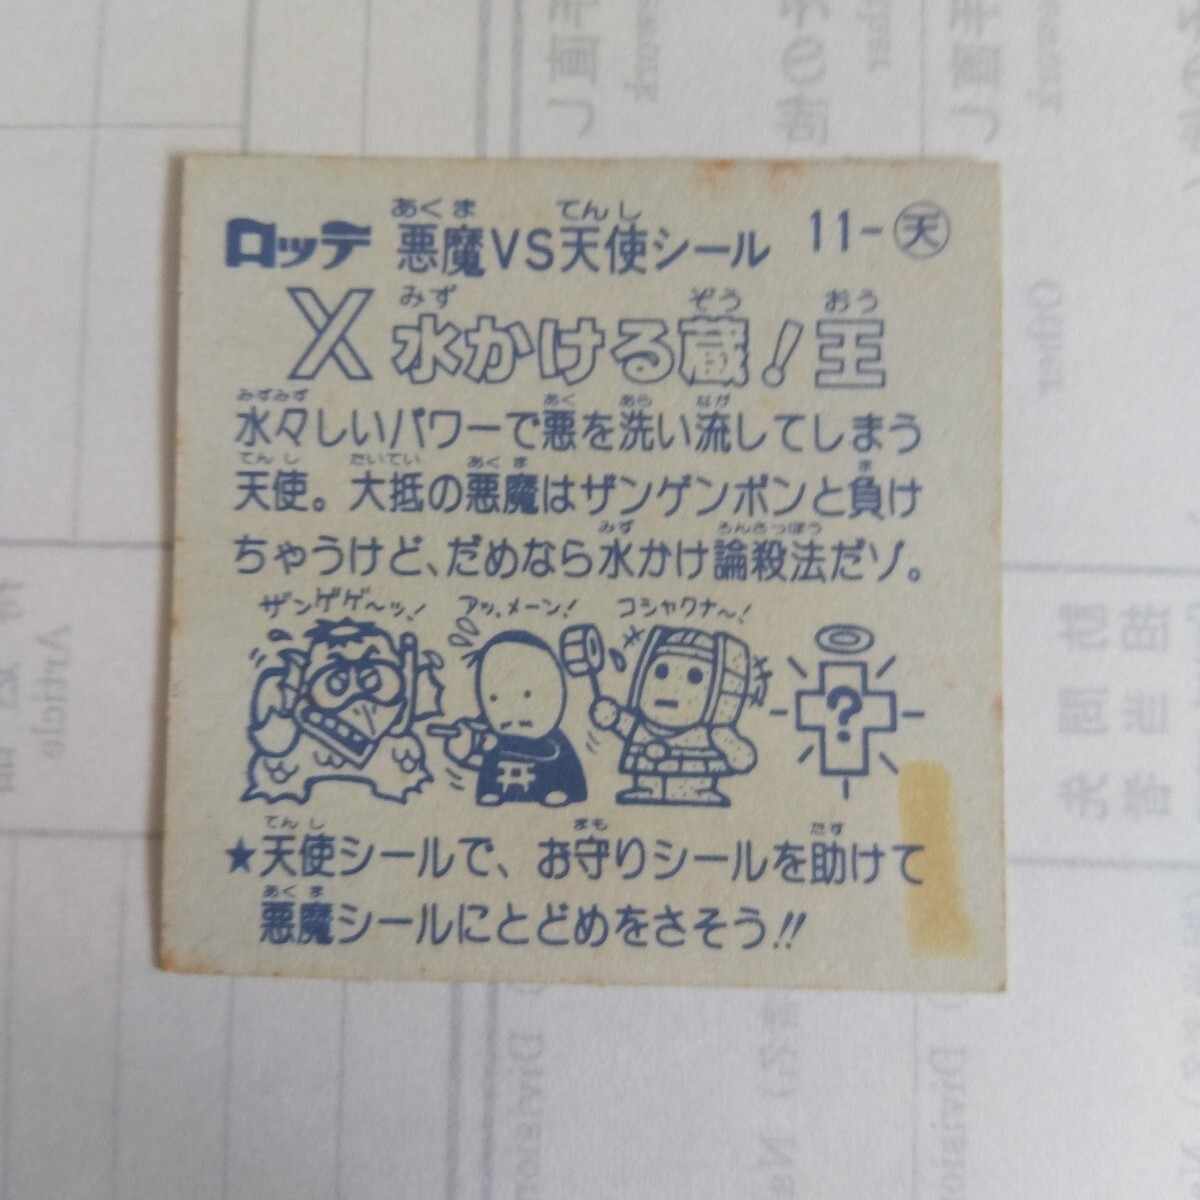 ロッテ 悪魔VS天使シール 11-天
X 水かける蔵!王
水々しいパワーで悪を洗い流してしまう
天使。大抵の悪魔はザンゲンポンと負け
ちゃうけど、だめなら水かけ論殺法だゾ。
ザンゲゲ〜ッ! アッ、メーン! コシャクナ〜!
?
★天使シールで、お守りシールを助けて
悪魔シールにとどめをさそう!!
Other
Article
Division
Division